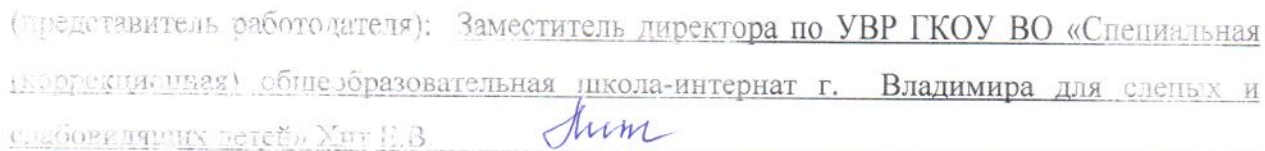 (представитель работодателя): Заместитель директора по УВР ГКОУ ВО «Специальная
(коррекционная) общеобразовательная школа-интернат г. Владимира для слепых и
слабовидящих детей» Хит Е.В.